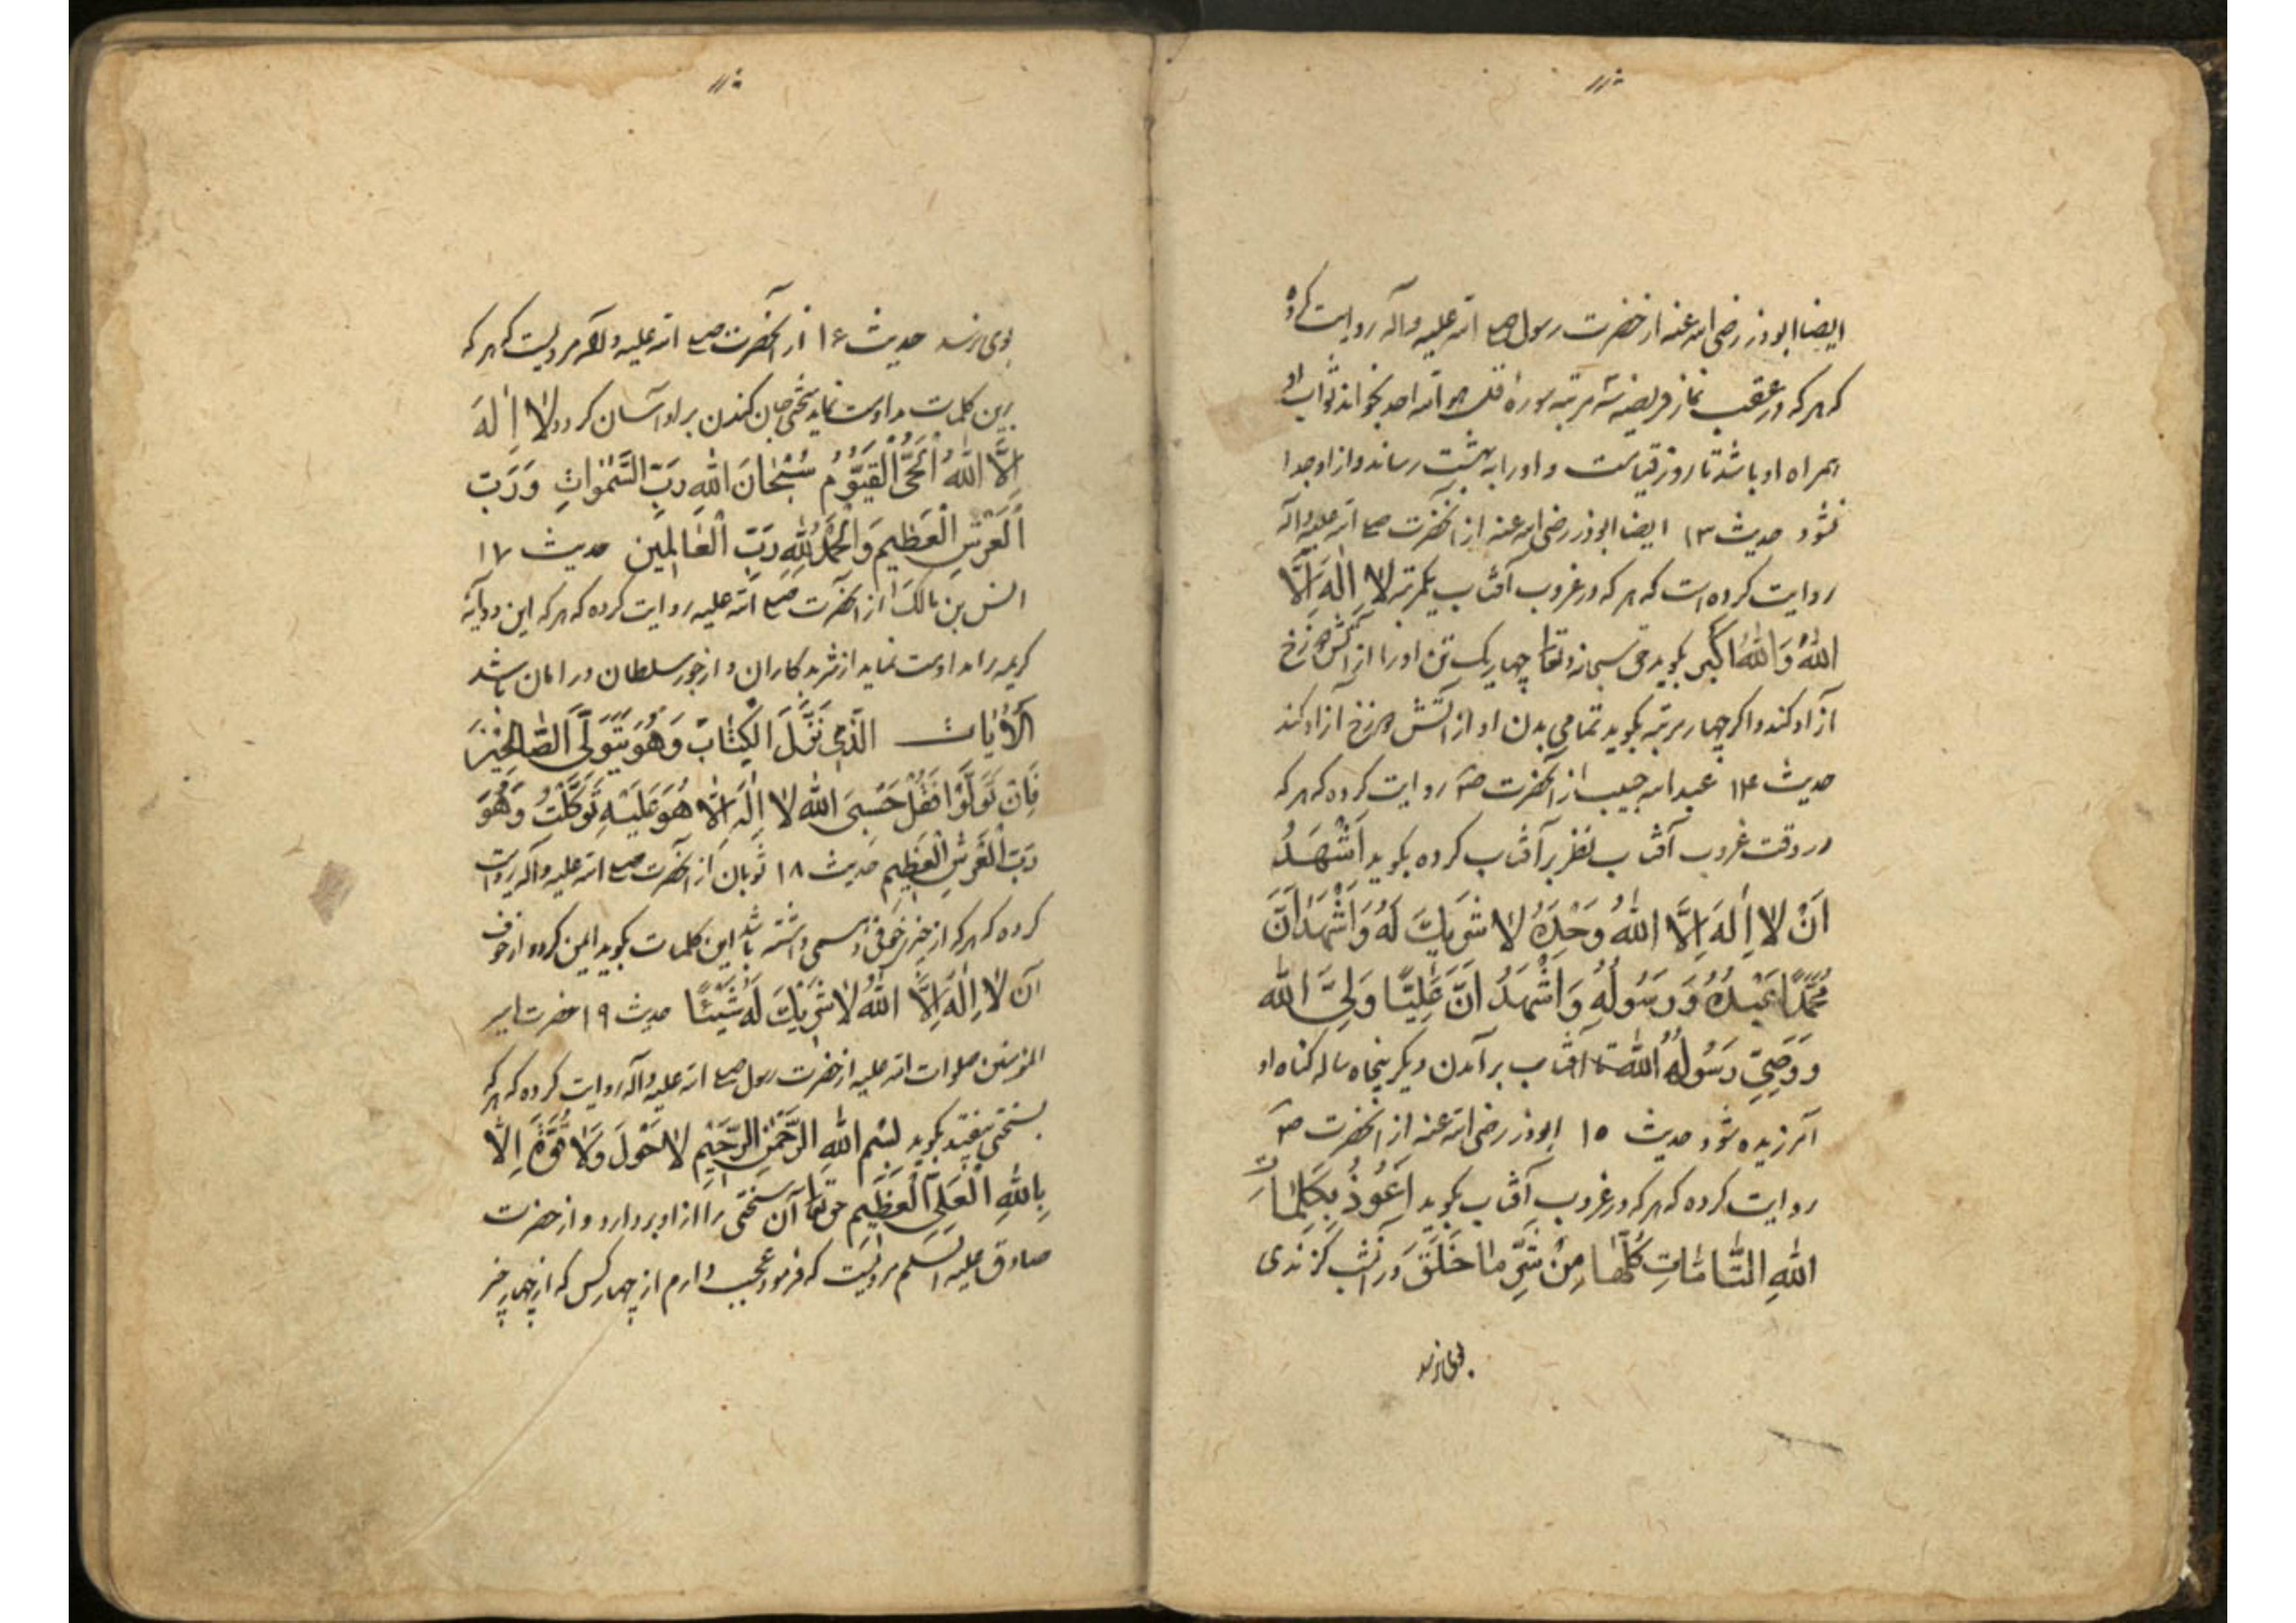 ایضا ابوذر رضی الله عنه از حضرت رسول صلی الله علیه وآله روایت کرده
که هر که در عقب نماز فریضه سه مرتبه سورهٔ قل هو الله احد بخواند ثواب او
همراه او باشد تا روز قیامت و او را به بهشت رساند و از او جدا
نشود حدیث ۱۳ ایضا ابوذر رضی الله عنه از آنحضرت صلی الله علیه وآله
روایت کرده است که هر که در غروب آفتاب یکمرتبه لا اِلٰهَ اِلَّا
اللهُ وَاللهُ اَکبر بگوید حق سبحانه وتعالی چهار یک تن او را از آتش دوزخ
آزاد کند و اکر چهار مرتبه بگوید تمامی بدن او از آتش دوزخ آزاد کند
حدیث ۱۴ عبد الله حبیب از آنحضرت ص روایت کرده که هر که
در وقت غروب آفتاب نظر بر آفتاب کرده بگوید اَشْهَدُ
اَنْ لا اِلهَ اِلَّا اللهُ وَحْدَهُ لا شَرِیكَ لَهُ وَاَشْهَدُ اَنَّ
مُحَمَّدًا عَبْدُهُ وَرَسُولُهُ وَاَشْهَدُ اَنَّ عَلِیًّا وَلِیَّ الله
وَوَصِیَّ رَسُولُهُ الله تا آفتاب برآمدن دیگر پنجاه ساله کناه او
آمرزیده شود حدیث ۱۵ ابوذر رضی الله عنه از آنحضرت ص
روایت کرده که هر که در غروب آفتاب بگوید اَعُوذُ بِکَلِمٰاتِ
اللهِ التّٰامّٰاتِ کُلِّهٰا مِنْ شَرِّ مٰا خَلَقَ در آنشب گزندی
بوی نرسد
بوی نرسد حدیث ۱۶ از آنحضرت صلی الله علیه وآله مرویست که هر که
برین کلمات مداومت نماید سختی جان کندن بر او آسان کردد لا اِلهَ
اِلَّا اللهُ الْحَیُّ الْقَیُّومُ سُبْحٰانَ اللهِ رَبِّ السَّمٰوٰاتِ وَرَبِّ
الْعَرْشِ الْعَظِیمِ وَالْحَمْدُ لِلّٰهِ رَبِّ الْعٰالَمِینَ حدیث ۱۷
انس بن مالک از آنحضرت صلی الله علیه روایت کرده که هر که این دو آیه
کریمه را مداومت نماید از شر بدکاران و از جور سلطان در امان باشد
اَلْآیٰات الَّذِی نَزَّلَ الْکِتٰابَ وَهُوَ یَتَوَلَّی الصّٰالِحِینَ
فَاِنْ تَوَلَّوْا فَقُلْ حَسْبِیَ الله لا اِلٰهَ اِلّٰا هُوَ عَلَیْهِ تَوَکَّلْتُ وَهُوَ
رَبُّ الْعَرْشِ الْعَظِیمِ حدیث ۱۸ ثوبان از آنحضرت صلی الله علیه وآله روایت
کرده که هر که از چیزی خوفی و بیمی داشته باشد این کلمات بگوید ایمن کردد از خوف
اَنْ لا اِلٰهَ اِلَّا اللهُ لا شَرِیْكَ لَهُ شَیْئًا حدیث ۱۹ حضرت امیر
المؤمنین صلوات الله علیه از حضرت رسول صلی الله علیه وآله روایت کرده که هر که
بسختی بیفتد بگوید بِسْمِ اللهِ الرَّحْمٰنِ الرَّحِیْمِ لا حَوْلَ وَلا قُوَّةَ اِلّٰا
بِاللهِ الْعَلِیِّ الْعَظِیمِ حق تعالی آن سختی را از او بردارد و از حضرت
صادق علیه السلم مرویست که فرمود عجب دارم از چهار کس که از چهار چیز